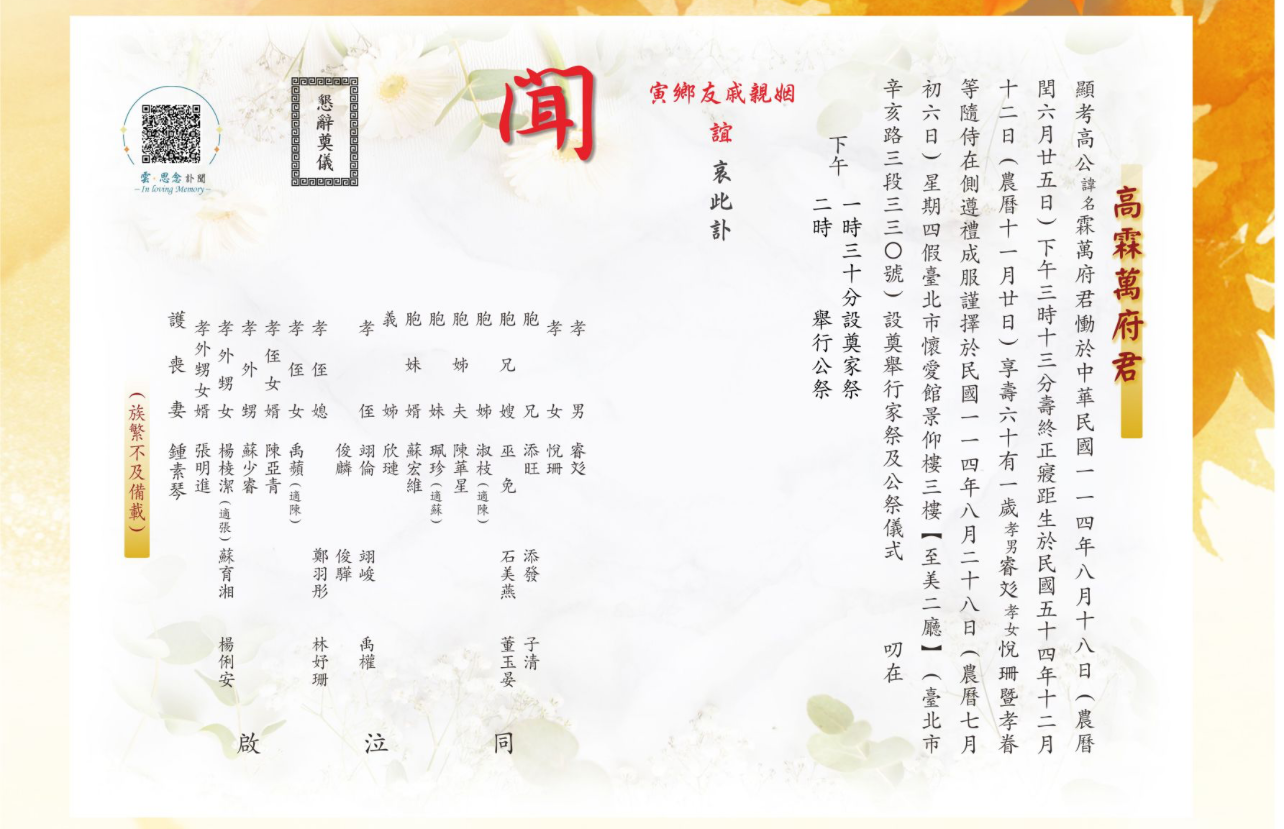 高霖萬府君
顯考高公諱名霖萬府君慟於中華民國一一四年八月十八日(農曆
閏六月廿五日)下午三時十三分壽終正寢距生於民國五十四年十二月
十二日(農曆十一月廿日)享壽六十有一歲孝男睿彣孝女悅珊暨孝眷
等隨侍在側遵禮成服謹擇於民國一一四年八月二十八日(農曆七月
初六日)星期四假臺北市懷愛館景仰樓三樓【至美二廳】(臺北市
辛亥路三段三三〇號)設奠舉行家祭及公祭儀式 叨在
下午
一時三十分設奠家祭
二時 舉行公祭
姻親戚友鄉寅
誼
哀此訃
聞
懇辭奠儀
雲.思念訃聞
–In loving Memory–
孝男 睿彣
孝女 悅珊
胞兄 添旺 添發 子清
胞兄嫂 巫免 石美燕 董玉晏
胞姊 淑枝(適陳)
胞姊夫 陳華星
胞妹 珮珍(適蘇)
胞妹婿 蘇宏維
義姊 欣璉
孝侄 翊倫 翊峻 禹權
俊麟 俊驊
孝侄媳 鄭羽彤 林妤珊
孝侄女 禹蘋(適陳)
孝侄女婿 陳亞青
孝外甥 蘇少睿
孝外甥女 楊棱潔(適張) 蘇育湘 楊俐安
孝外甥女婿 張明進
護喪妻 鍾素琴
同泣啟
(族繁不及備載)